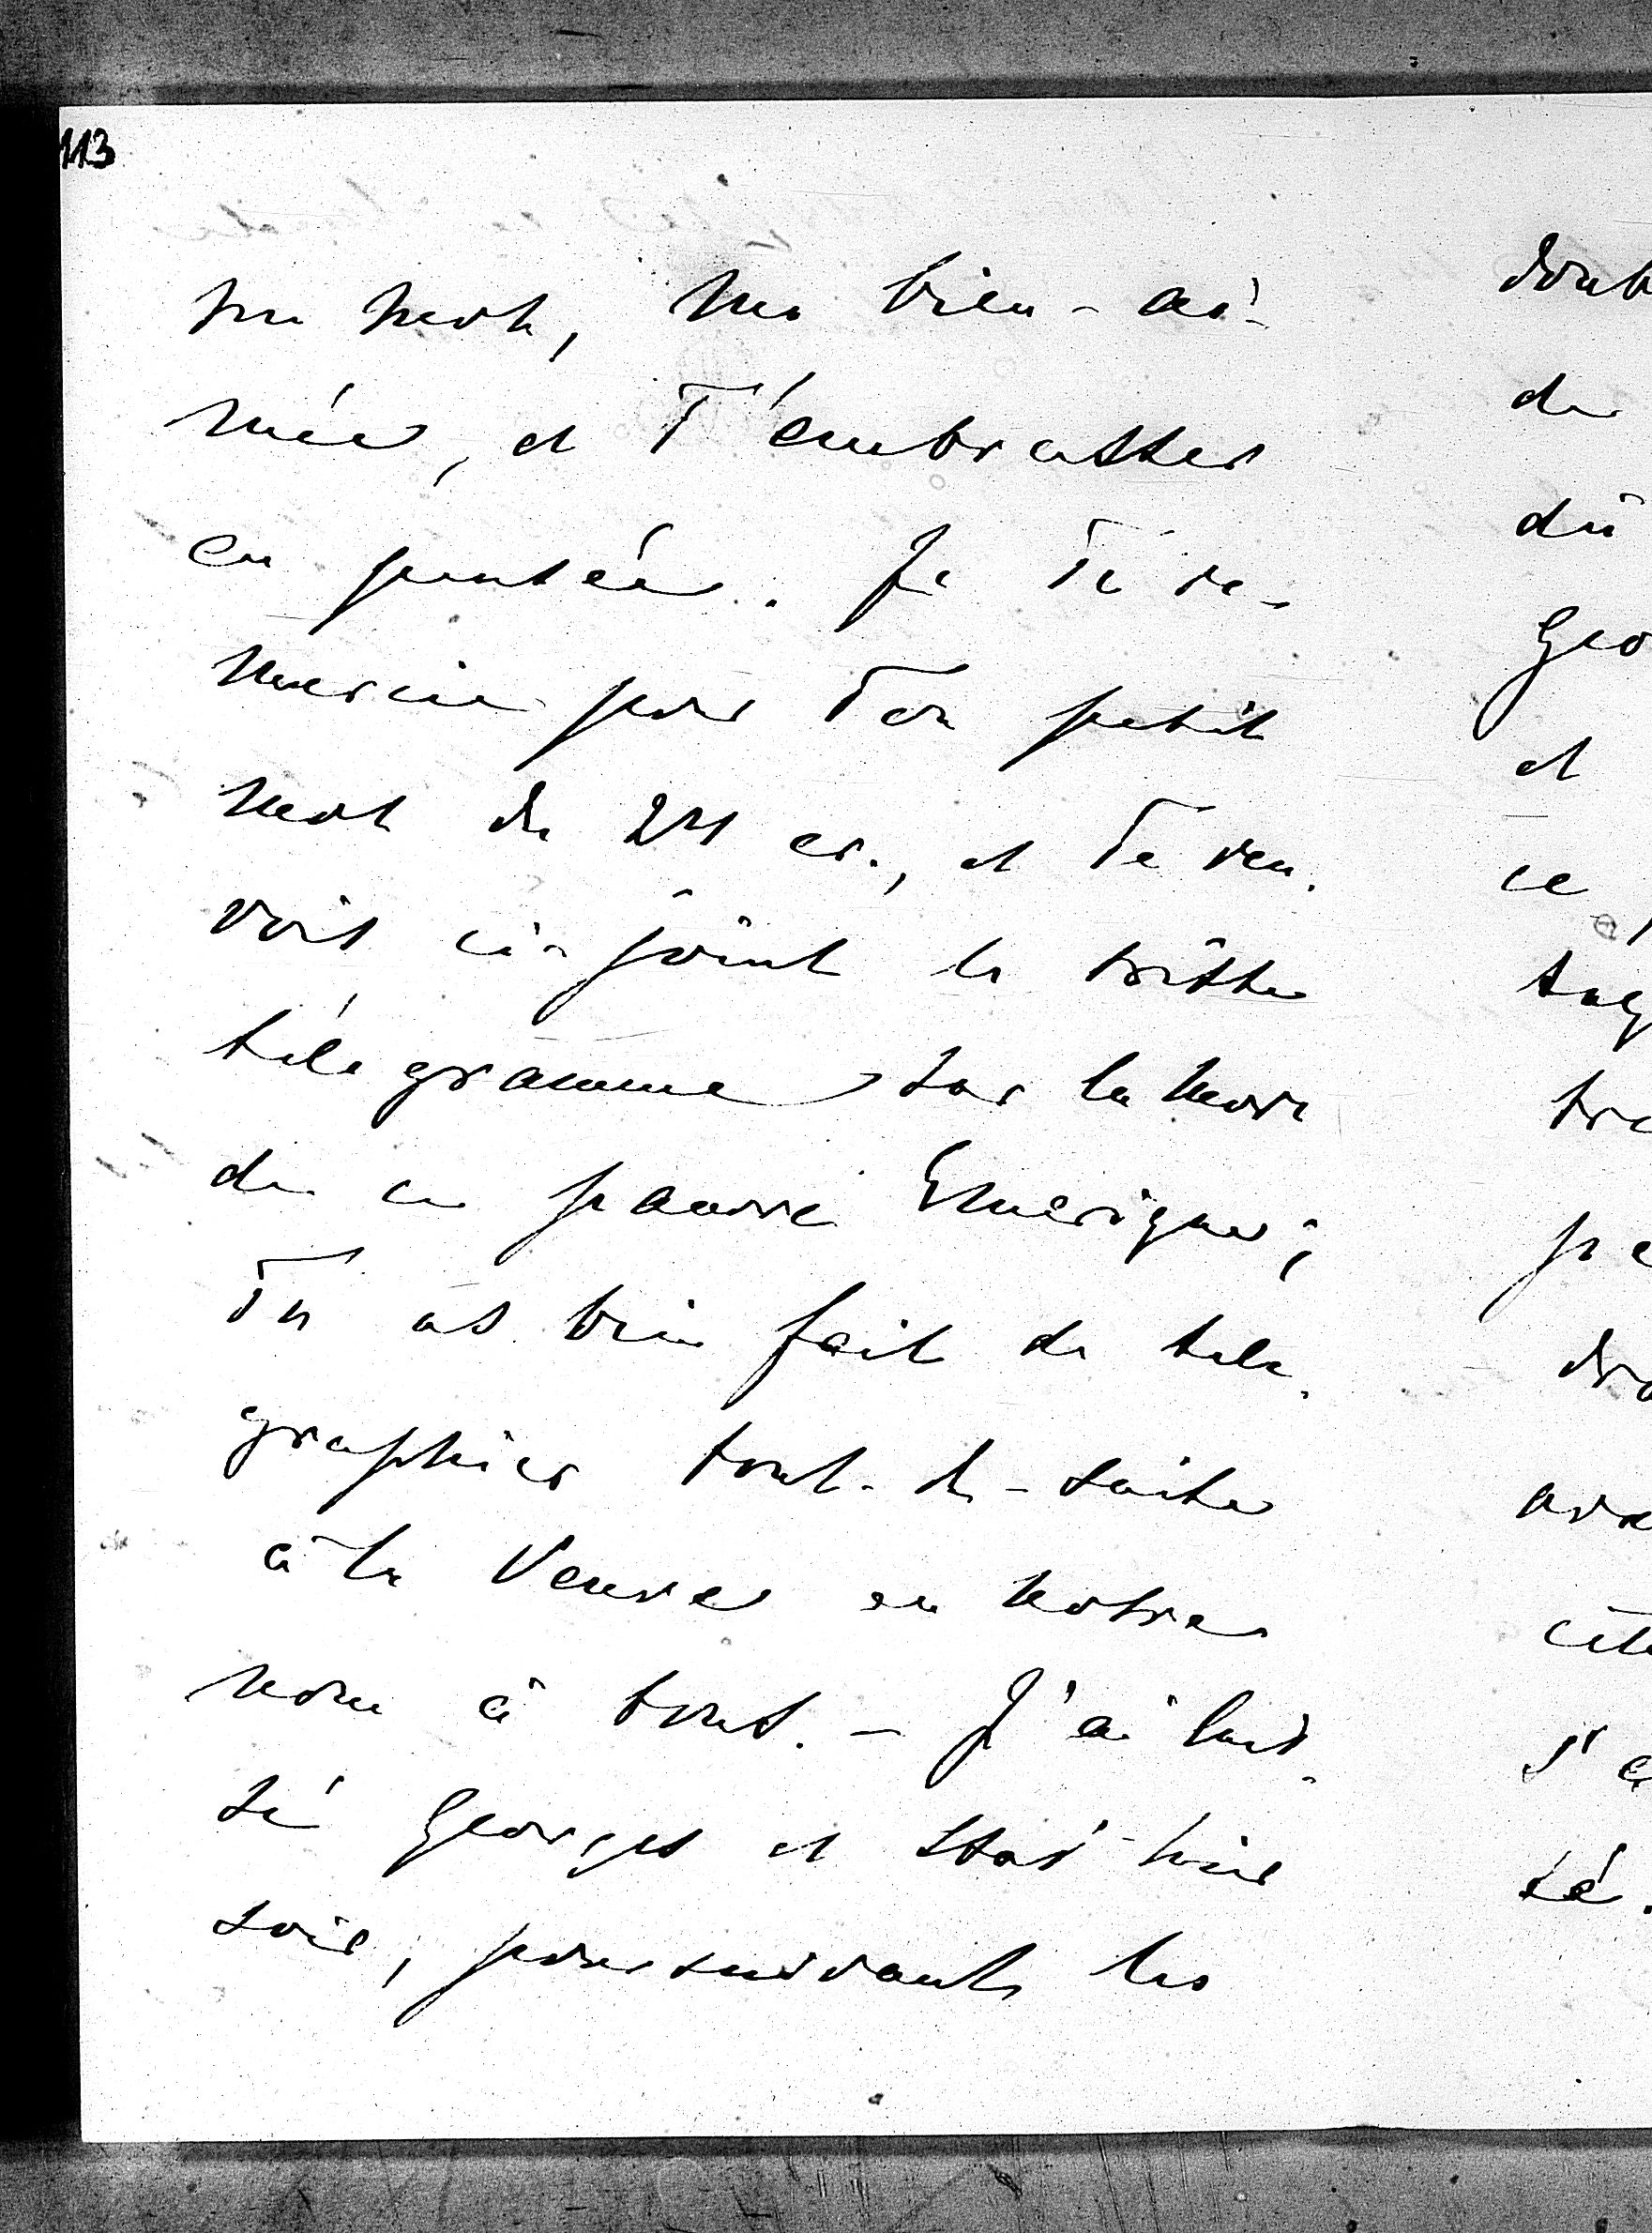 113
un mot, ma bien-ai-
mée, et T'embrasser
en pensée. Je Te re-
mercie pour Ton petit
mot du 24 cr., et Te ren-
vois ci-joint le triste
télégramme sur la mort
de ce pauvre Emerique;
Tu as bien fait de télé-
graphier tout-de-suite
à la Veuve en notre
nom à tous. – J'ai lais-
sé Georges et Stas' hier
soir, poursuivants les
doub
de
dû
Geo
et
ce
tra
pe
dro
ava
s'e
sé.